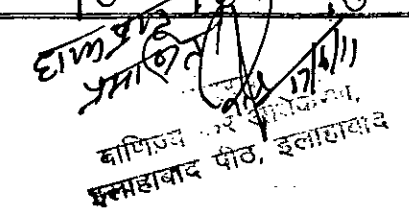 प्रमाणित
17/6/11
वाणिज्य कर अधिकरण,
इलाहाबाद पीठ, इलाहाबाद